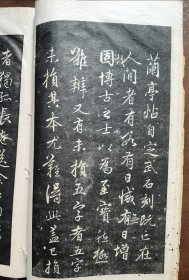 蘭亭帖自定武石刻既亡在
人間者有數有日減無日增
故博古之士以為至寶然極
難辨又有未損五字者五字
未損其本尤難得此蓋已損
者獨孤長老送余